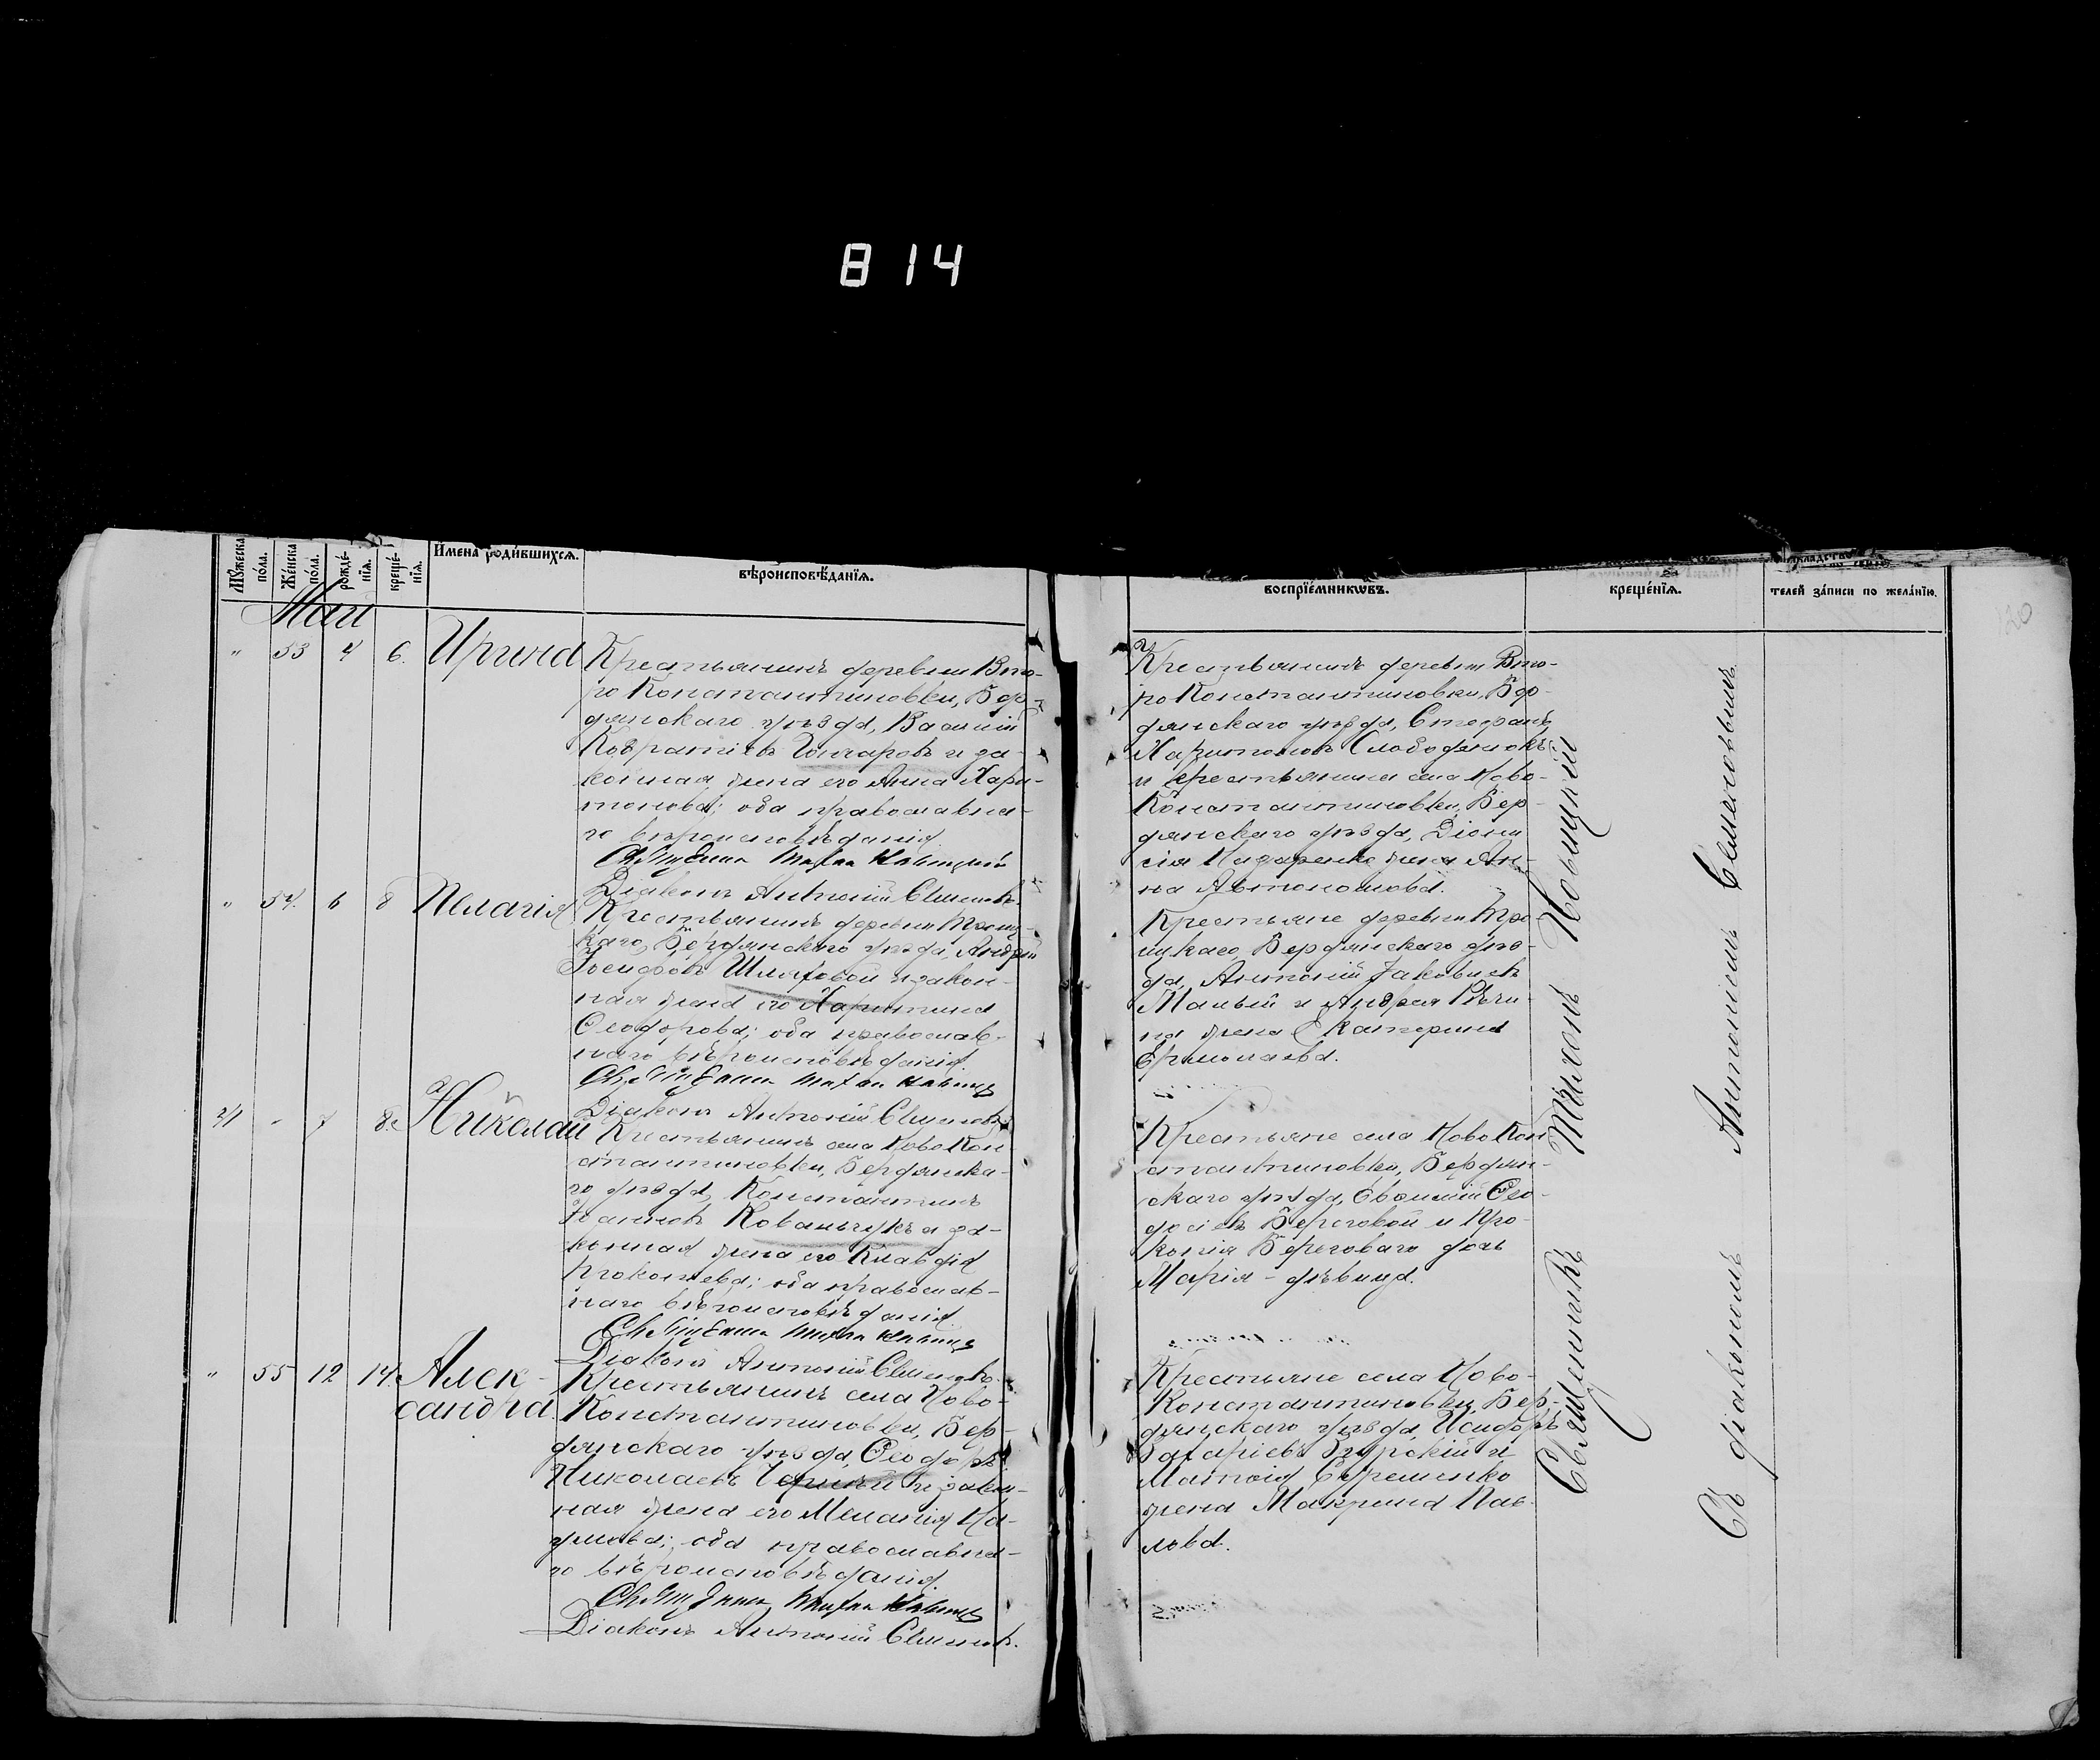 814
Мужеска пола.
Женска пола.
рожденія.
крещенія.
Имена родившихся.
вѣроисповѣданія.
Май
" 53 4 6. Ирина
Крестьянинъ деревни Вто-
ро Константиновки, Бер-
дянскаго уѣзда, Василій
Кодратіевъ Гончаровъ и за-
конная жена его Анна Хари-
тонова; оба православна-
го вѣроисповѣданія.
Священникъ Тихон Новицкій
Діаконъ Антоній Семеновъ
" 54. 6 8 Пелагія
Крестьянинъ деревни Троиц-
каго, Бердянскаго уѣзда, Андрей
Іосифовъ Шляховой и закон-
ная жена его Харитина
Ѳеодорова; оба православ-
наго вѣроисповѣданія.
Священникъ Тихон Новицкій
Діаконъ Антоній Семеновъ
41 " 7 8. Николай
Крестьянинъ села Ново Кон-
стантиновки, Бердянска-
го уѣзда, Константинъ
Іоанновъ Ковальчукъ и за-
конная жена его Клавдія
Прокопіева; оба православ-
наго вѣроисповѣданія.
Священникъ Тихон Новицкій
Діаконъ Антоній Семеновъ.
" 55 12 14. Алек-
сандра.
Крестьянинъ села Ново-
Константиновки, Бер-
дянскаго уѣзда, Ѳеодоръ
Николаевъ и закон-
ная жена его Меланія На-
умова; оба православна-
го вѣроисповѣданія.
Священникъ Тихон Новицкій
Діаконъ Антоній Семеновъ.
воспріемниковъ.
крещенія.
телей записи по желанію.
120
Крестьянинъ деревни Вто-
ро Константиновки, Бер-
дянскаго уѣзда, Стефанъ
Харитоновъ Слободянюкъ
и крестьянина села Ново-
Константиновки, Бер-
дянскаго уѣзда, Діони-
сія Назаренко жена Ан-
на Автономова.
Крестьяне деревни Тро-
ицкаго, Бердянскаго уѣз-
да, Антоній Іаковлевъ
Малый и Андрея
жена Екатерина
Ермолаева.
Крестьяне села Ново Кон-
стантиновки, Бердян-
скаго уѣзда, Ѳео-
досіевъ Береговой и Про-
копія Береговаго дочь
Марія - дѣвица.
Крестьяне села Ново-
Константиновки, Бер-
дянскаго уѣзда, Исидоръ
Захаріевъ и
Матѳія Ефременко
жена Макрина Пав-
лова.
Священникъ Тихонъ Новицкій
Съ діакономъ Антоніемъ Семеновымъ